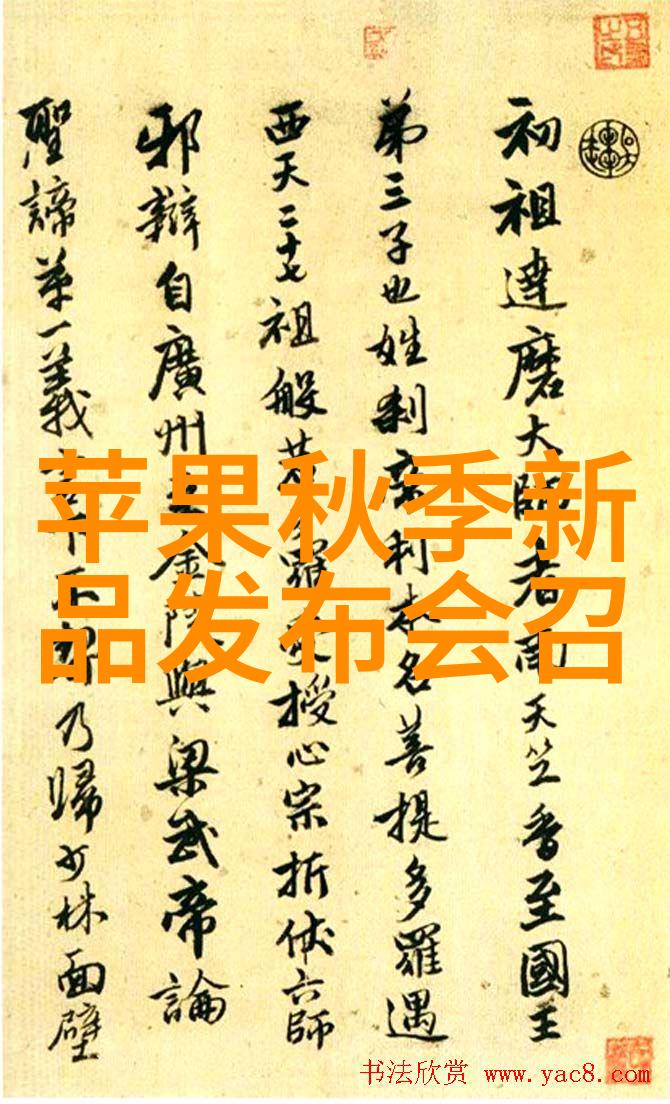 初祖達磨大師者南天竺香至國王
第三子也姓刹帝利本名菩提多羅遇
西天二十七祖般若多羅受授心宗折伏六師
邪辯自廣州之金陵與梁武帝論
聖諦第一義言下不契乃歸少林面壁
苹果秋季新
品发布会召
书法欣赏 www.yac8.com